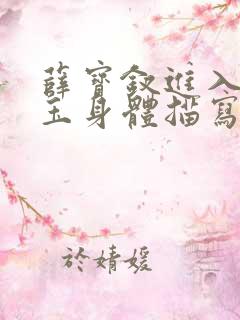 薛寶釵進入
玉身體描寫
於婧媛